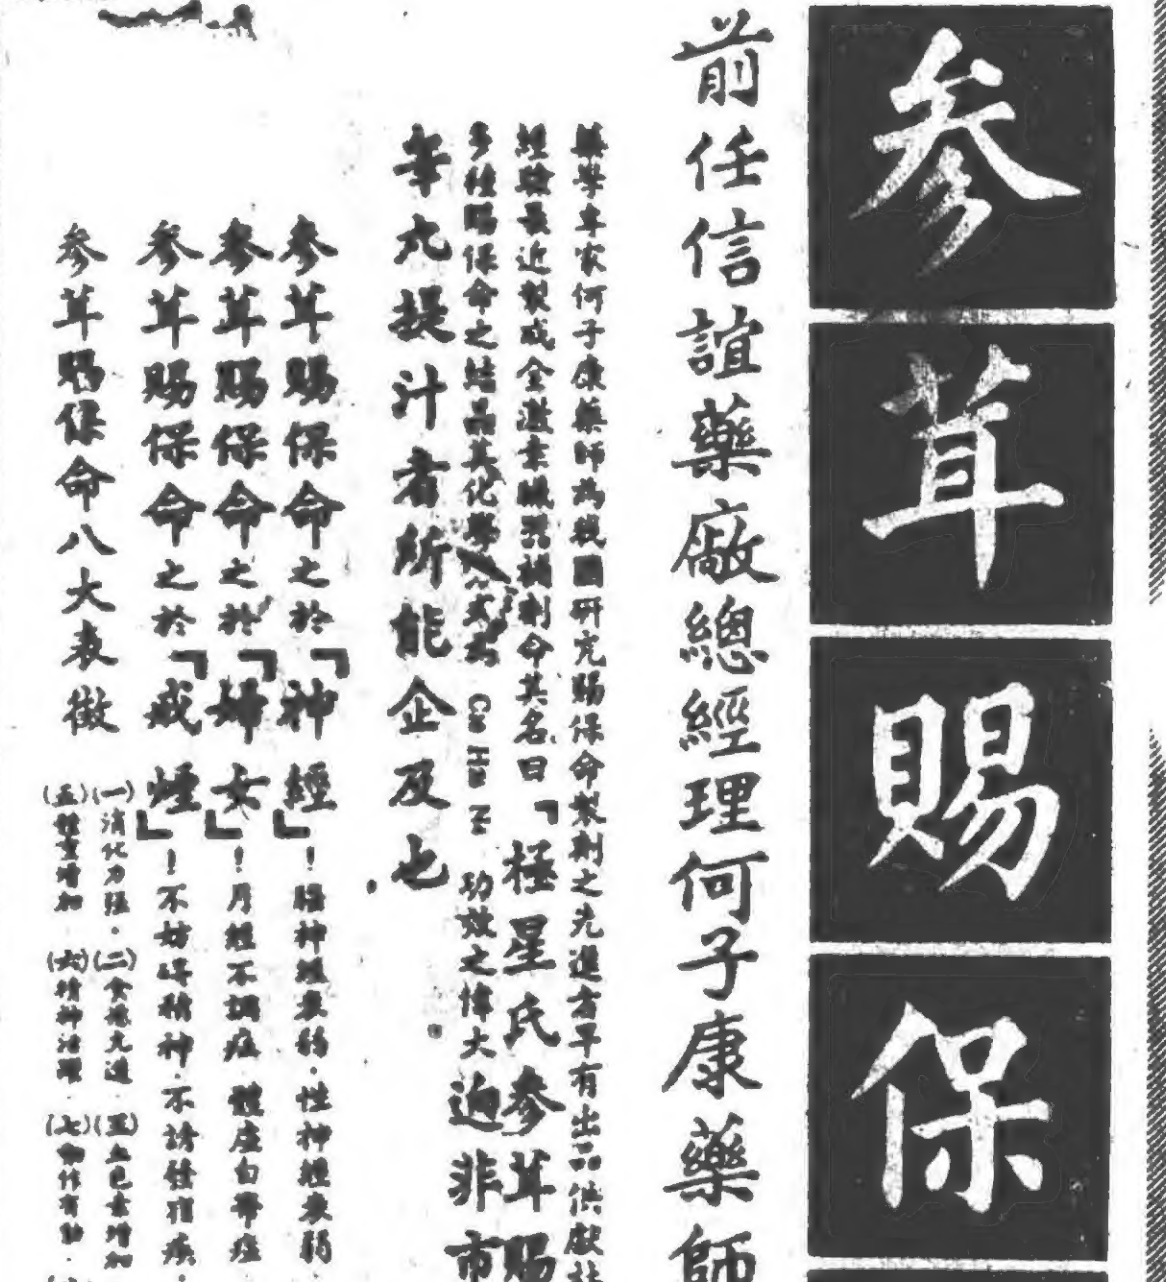 參茸賜保
前任信誼藥廠總經理何子康藥師
藥學專家何子康藥師為我國研究賜保命製劑之先進者早有出品供獻社
經驗最近製成全激素臟器補劑命其名曰「極星氏參茸賜
多種賜保命之結晶其化學公式為 功效之偉大迥非市
等丸提汁者所能企及也。
參茸賜保命之於「神經」！腦神經衰弱．性神經衰弱
參茸賜保命之於「婦女」！月經不調症．體虛白帶症
參茸賜保命之於「戒煙」！不妨碍精神．不誘發宿疾．
參茸賜保命八大表徵
(一)消化力強．(二)食慾亢進．(三)血色素增加
(五)體重增加．(六)精神活躍．(七)動作有勁．